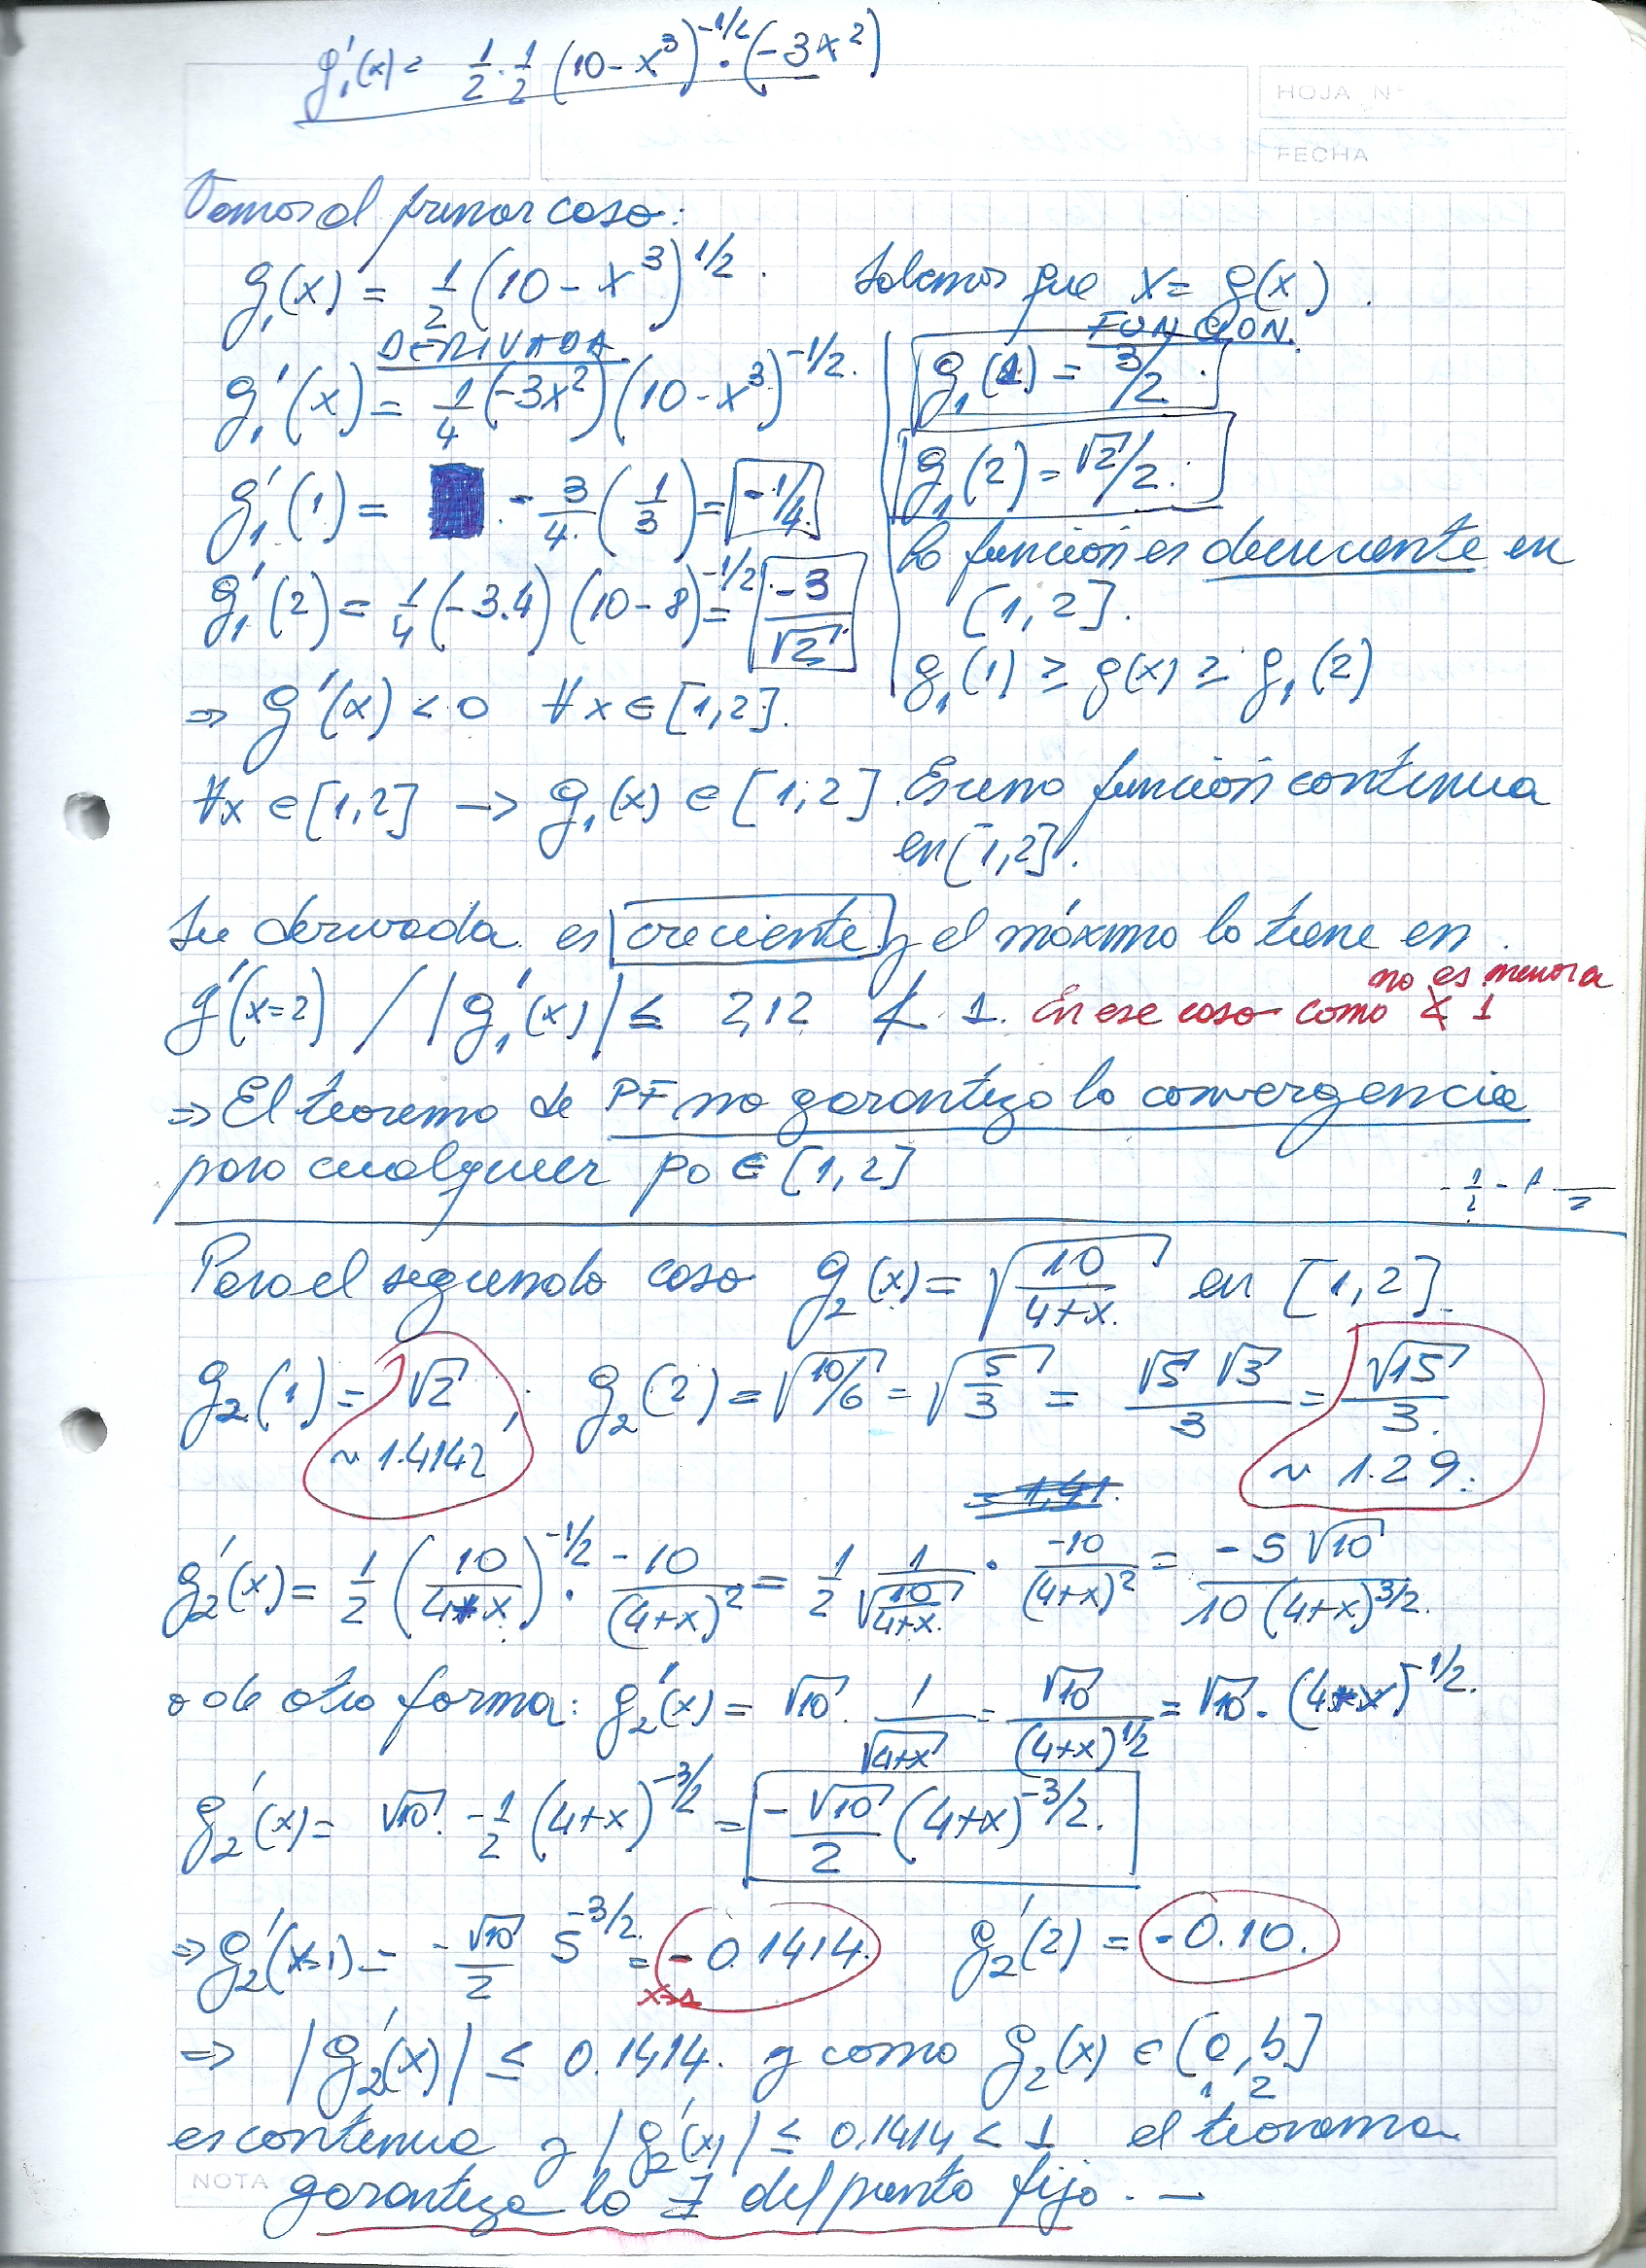 g₁'(x) = 1/2 · 1/2 (10 - x³)^-1/2 · (-3x²)
HOJA Nº
FECHA
Vamos al primer caso:
g₁(x) = 1/2 (10 - x³)^1/2. Sabemos que x = g(x).
DERIVADA FUNCION.
g₁'(x) = 1/4 (-3x²) (10 - x³)^-1/2. g₁(1) = 3/2.
g₁(2) = √2/2.
g₁'(1) = - 3/4. (1/3) = -1/4.
la función es decreciente en
g₁'(2) = 1/4 (-3.4) (10 - 8)^-1/2 = -3/√2. [1,2].
g₁(1) ≥ g(x) ≥ g₁(2)
⇒ g'(x) < 0 ∀x ∈ [1,2].
∀x ∈ [1,2] → g₁(x) ∈ [1,2]. Es una función continua
en [1,2].
Su derivada es creciente y el máximo lo tiene en
no es menor a
g'(x=2) / |g₁'(x)| ≤ 2,12 ≮ 1. En ese caso como ≮ 1
⇒ El teorema de PF no garantiza la convergencia
para cualquier p0 ∈ [1,2]
Para el segundo caso g₂(x) = √(10/(4+x)) en [1,2].
g₂(1) = √2 ; g₂(2) = √(10/6) = √(5/3) = √5 √3/3 = √15/3.
~ 1.4142 ~ 1.29.
= 1,41.
g₂'(x) = 1/2 (10/(4+x))^-1/2 · -10/(4+x)² = 1/2 1/√(10/(4+x)) · -10/(4+x)² = -5√10/(10 (4+x)^3/2).
o de otra forma: g₂'(x) = √10 · 1/√(4+x) = √10/(4+x)^1/2 = √10 · (4+x)^-1/2.
g₂'(x) = √10 · -1/2 (4+x)^-3/2 = -√10/2 (4+x)^-3/2.
⇒ g₂'(x=1) = -√10/2 5^-3/2 = -0.1414. g₂'(2) = -0.10.
⇒ |g₂'(x)| ≤ 0.1414. y como g₂(x) ∈ [a,b]
1 2
es continua y |g₂'(x)| ≤ 0.1414 < 1 el teorema
NOTA garantiza la ∃ del punto fijo. —